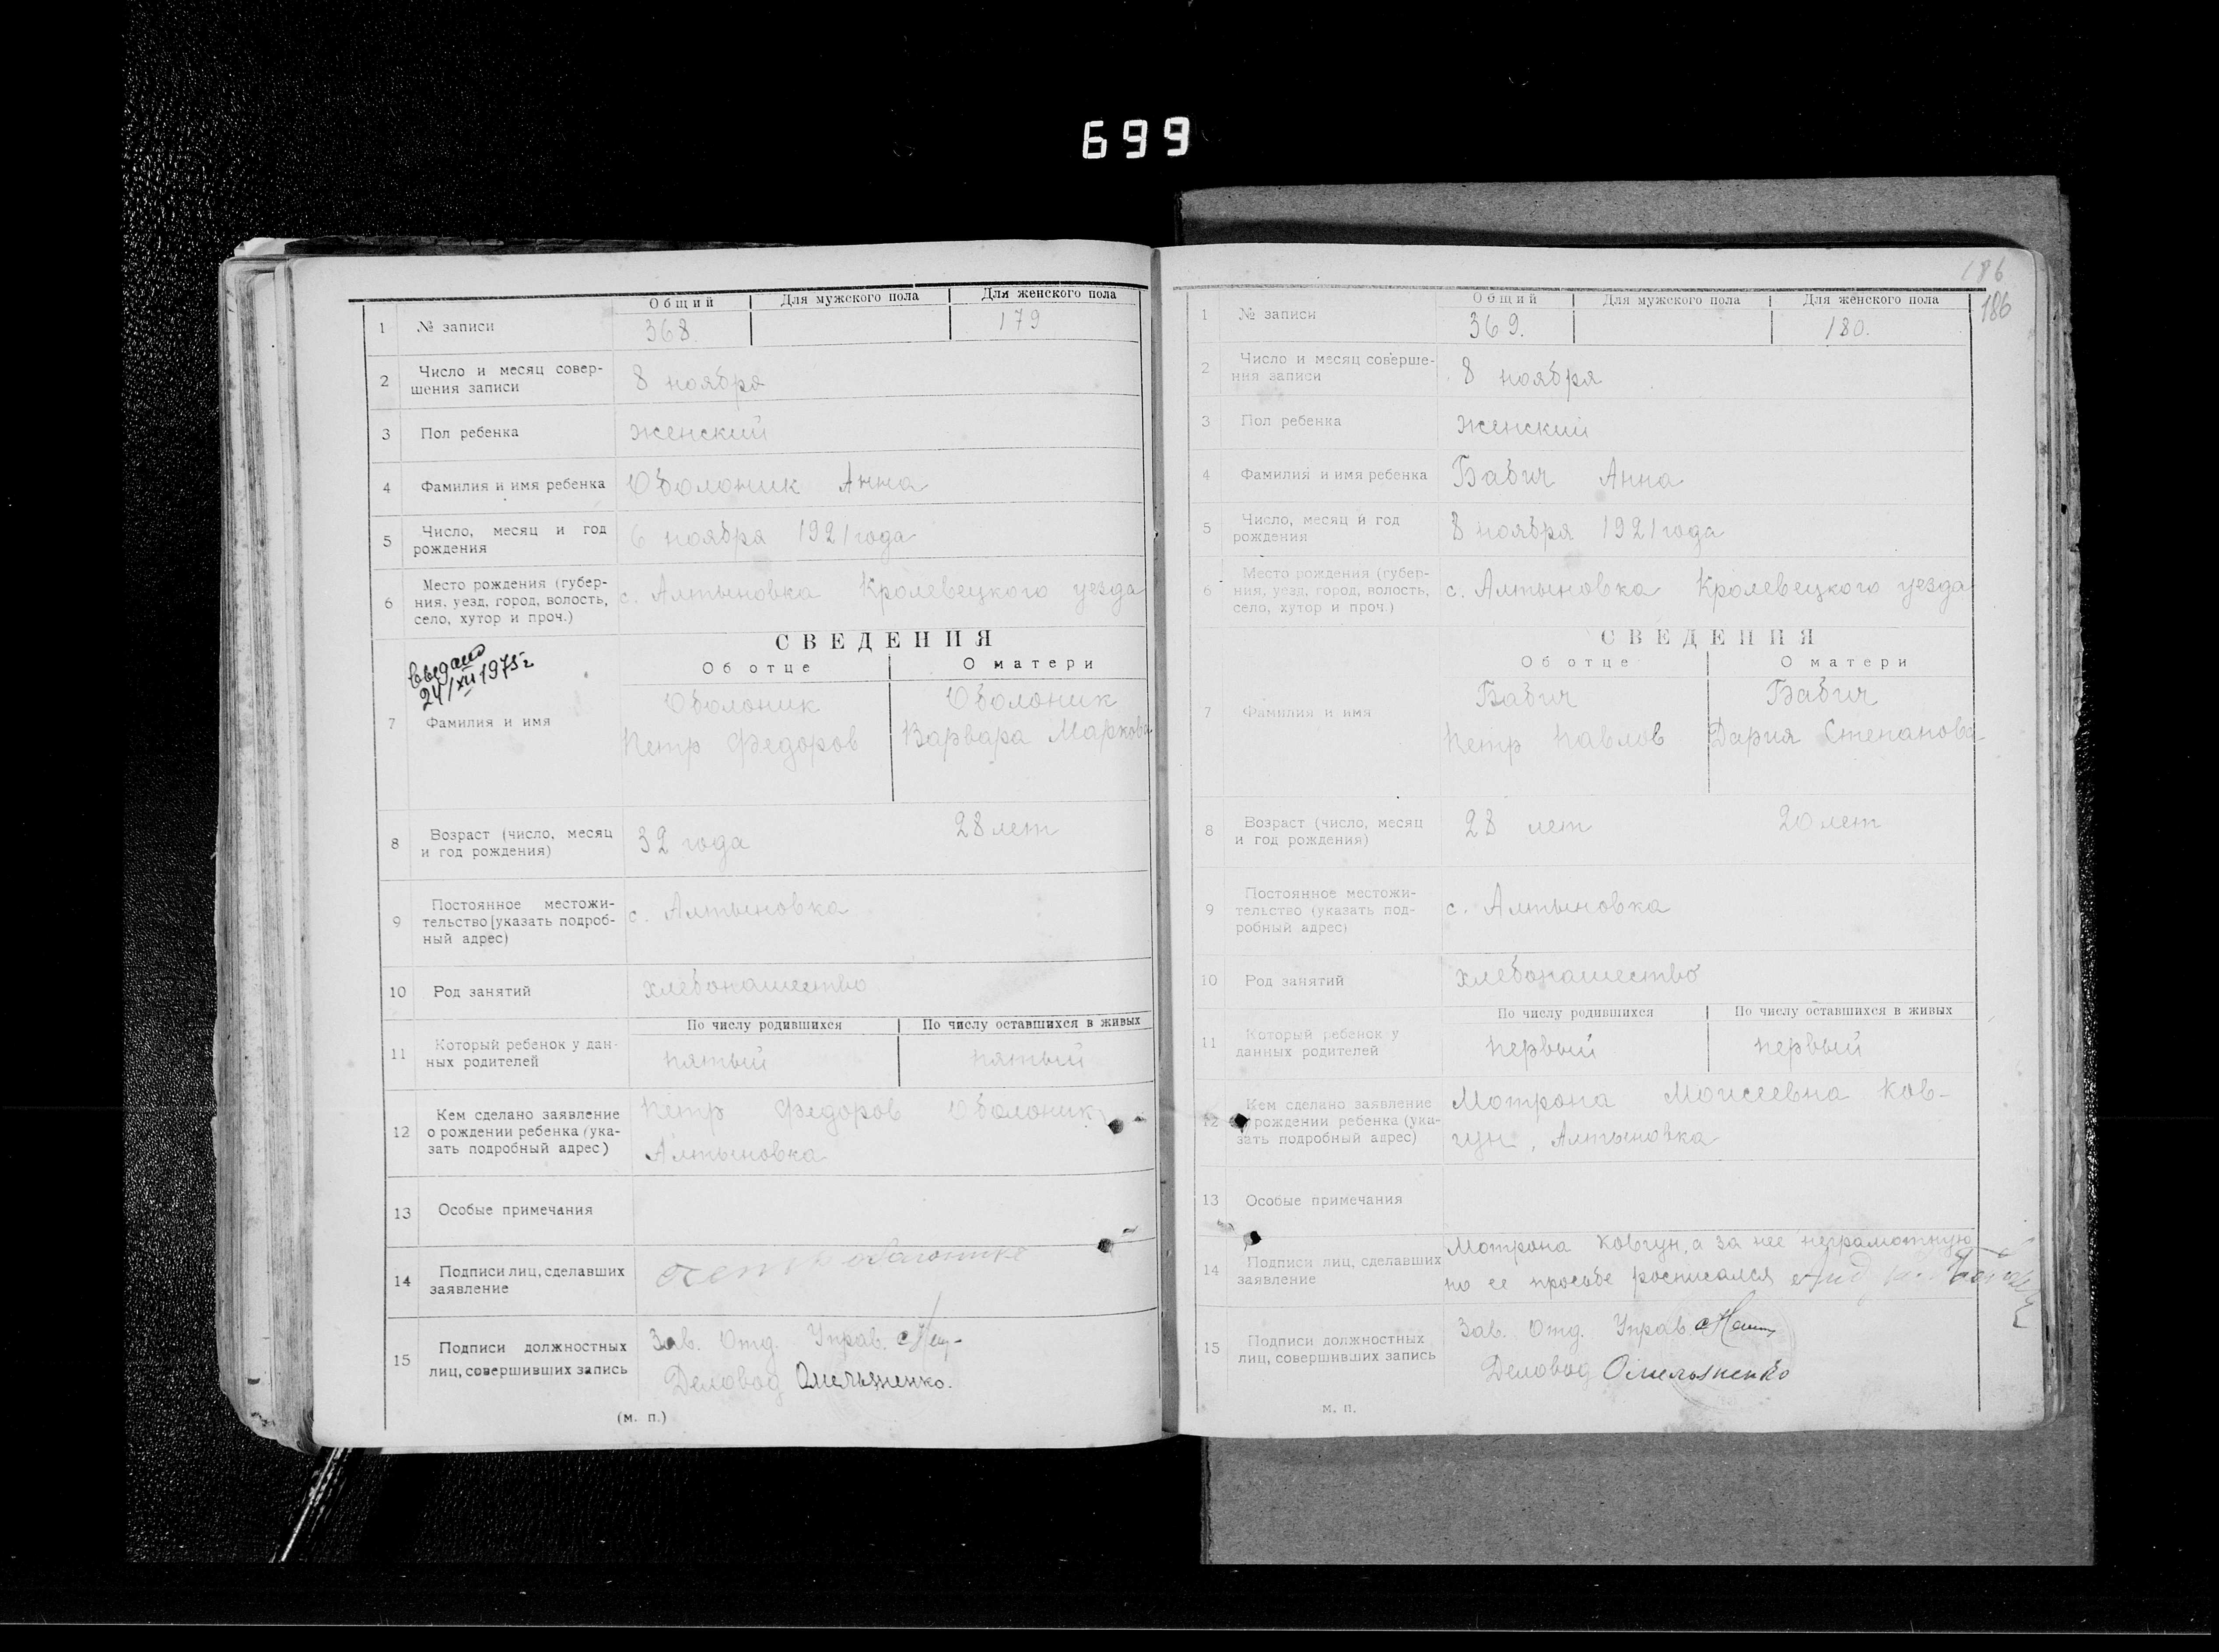 699
Общий Для мужского пола Для женского пола
1 № записи 368. 179
2 Число и месяц совер-
шения записи 8 ноября
3 Пол ребенка женский
4 Фамилия и имя ребенка Оболоник Анна
5 Число, месяц и год
рождения 6 ноября 1921 года
6 Место рождения (губер-
ния, уезд, город, волость,
село, хутор и проч.) с. Алтыновка Кролевецкого уезда
СВЕДЕНИЯ
Об отце О матери
выдано
24/XII 1975г
7 Фамилия и имя
Оболоник Оболоник
Петр Федоров Варвара Маркова
8 Возраст (число, месяц
и год рождения) 32 года 28 лет
9 Постоянное местожи-
тельство [указать подроб-
ный адрес) с. Алтыновка
10 Род занятий хлебопашество
По числу родившихся По числу оставшихся в живых
11 Который ребенок у дан-
ных родителей пятый пятый
12 Кем сделано заявление
о рождении ребенка (ука-
зать подробный адрес)
Петр Федоров Оболоник
Алтыновка
13 Особые примечания
14 Подписи лиц, сделавших
заявление
15 Подписи должностных
лиц, совершивших запись
Зав. Отд. Управ.
Деловод Омельяненко.
(м. п.)
186
186
Общий Для мужского пола Для женского пола
1 № записи 369. 180.
2 Число и месяц соверше-
ния записи 8 ноября
3 Пол ребенка женский
4 Фамилия и имя ребенка Бабич Анна
5 Число, месяц и год
рождения 8 ноября 1921 года
6 Место рождения (губер-
ния, уезд, город, волость,
село, хутор и проч.) с. Алтыновка Кролевецкого уезда
СВЕДЕНИЯ
Об отце О матери
7 Фамилия и имя
Бабич Бабич
Петр Павлов Дария Степанова
8 Возраст (число, месяц
и год рождения) 28 лет 20 лет
9 Постоянное местожи-
тельство (указать под-
робный адрес) с. Алтыновка
10 Род занятий хлебопашество
По числу родившихся По числу оставшихся в живых
11 Который ребенок у
данных родителей первый первый
12 Кем сделано заявление
о рождении ребенка (ука-
зать подробный адрес)
Мотрона Моисеевна Ков-
гун, Алтыновка
13 Особые примечания
14 Подписи лиц, сделавших
заявление
Мотрона Ковгун, а за нее неграмотную
по ее просьбе росписался
15 Подписи должностных
лиц, совершивших запись
Зав. Отд. Управ
Деловод Омельяненко
м. п.